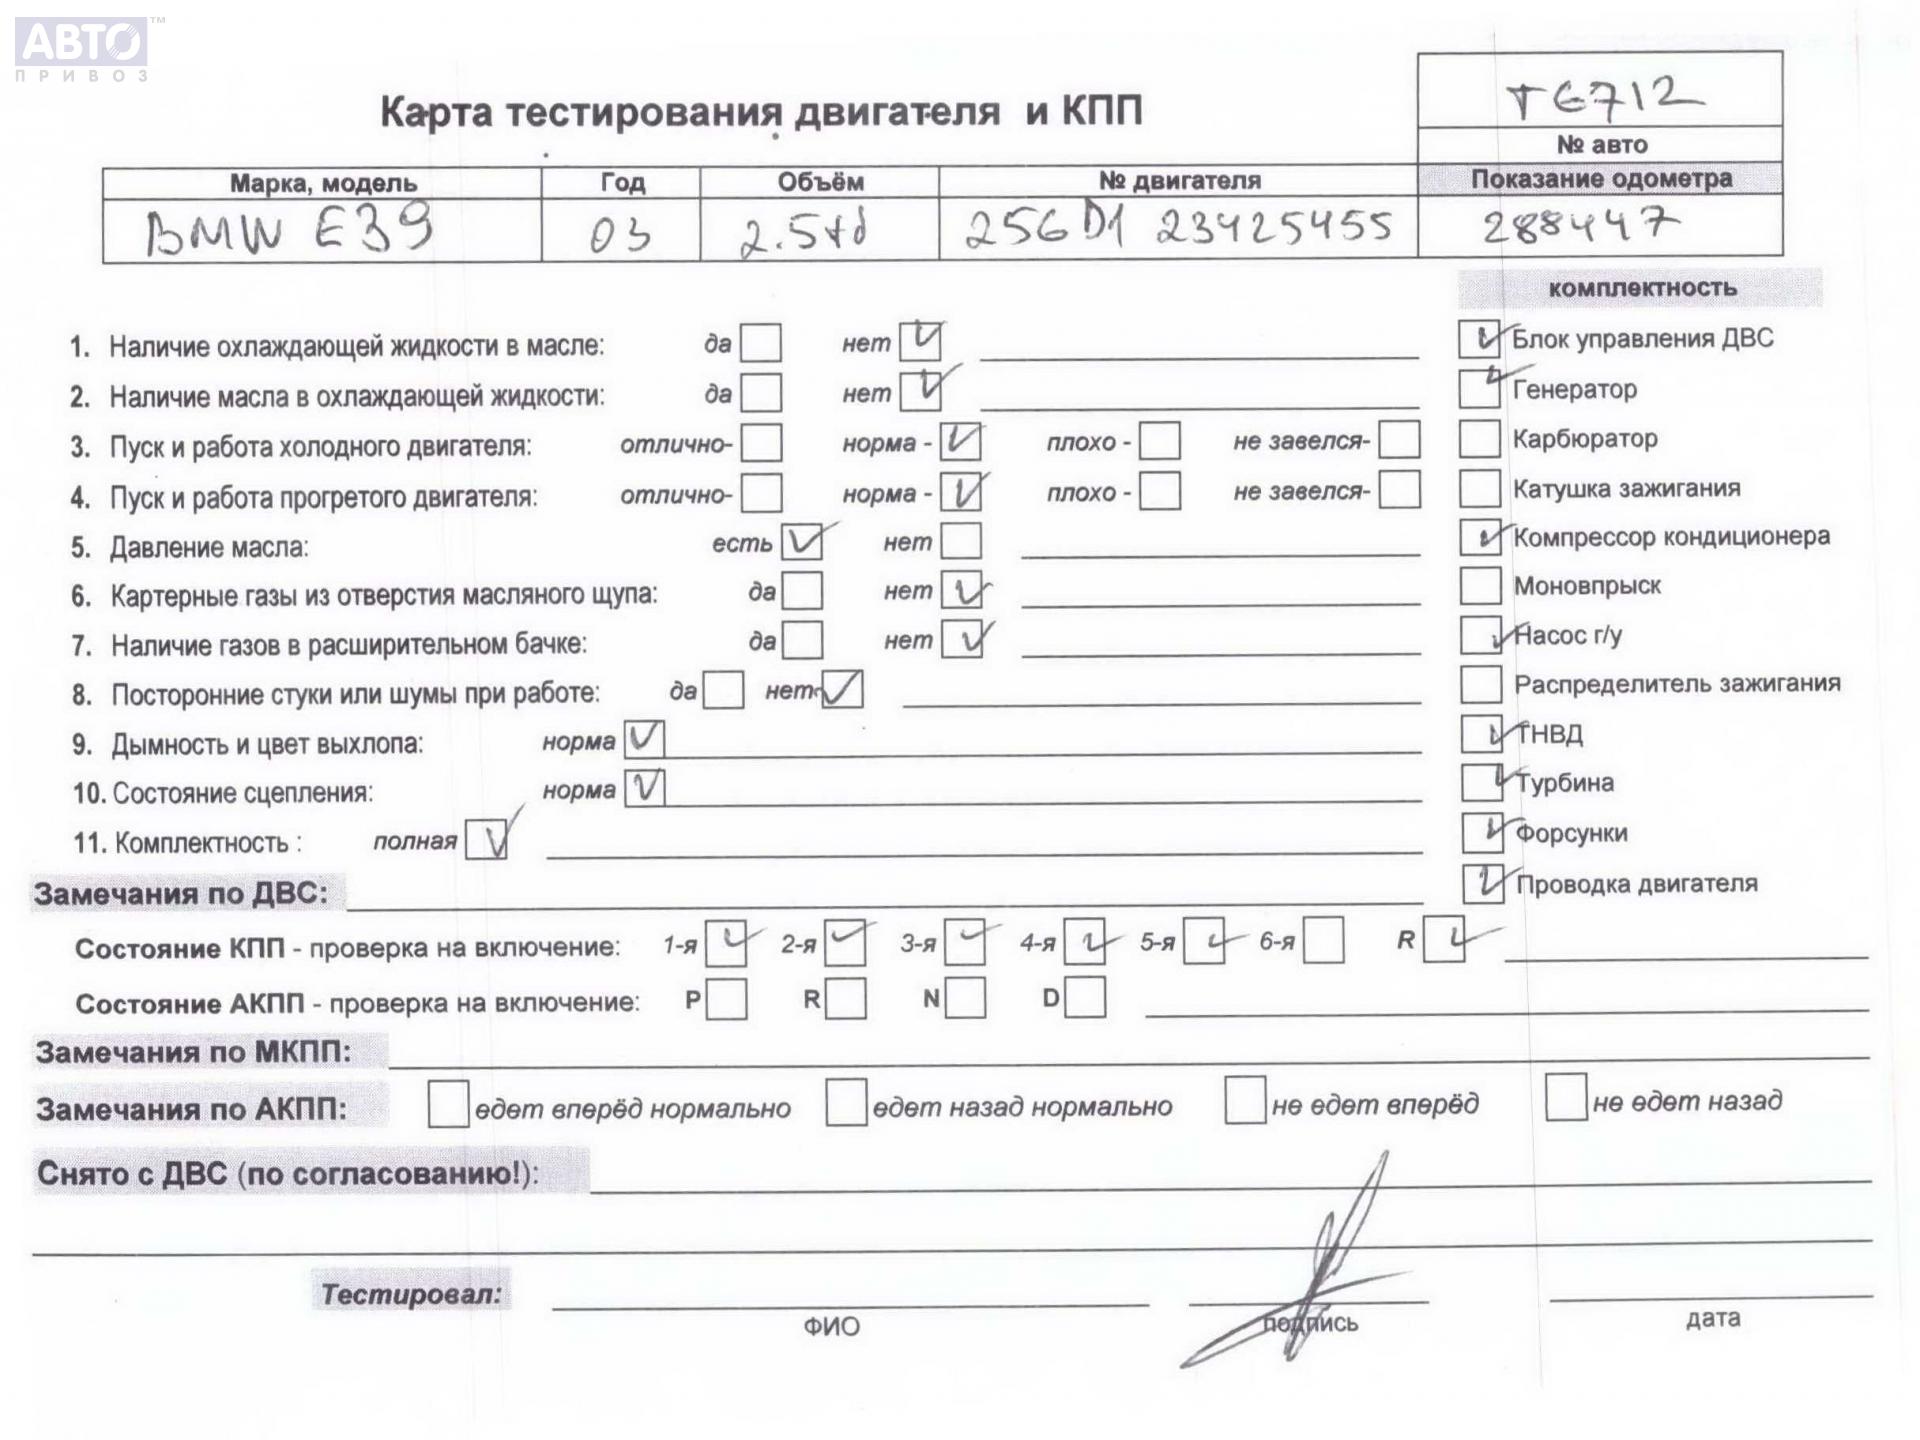 АВТО™
ПРИВОЗ
TE712
Карта тестирования двигателя и КПП
№ авто
Марка, модель Год Объём № двигателя Показание одометра
BMW E39 03 2.5td 256D1 23425455 288447
комплектность
1. Наличие охлаждающей жидкости в масле: да нет Блок управления ДВС
2. Наличие масла в охлаждающей жидкости: да нет Генератор
3. Пуск и работа холодного двигателя: отлично- норма - плохо - не завелся- Карбюратор
4. Пуск и работа прогретого двигателя: отлично- норма - плохо - не завелся- Катушка зажигания
5. Давление масла: есть нет Компрессор кондиционера
6. Картерные газы из отверстия масляного щупа: да нет Моновпрыск
7. Наличие газов в расширительном бачке: да нет Насос г/у
8. Посторонние стуки или шумы при работе: да нет- Распределитель зажигания
9. Дымность и цвет выхлопа: норма ТНВД
10. Состояние сцепления: норма Турбина
11. Комплектность : полная Форсунки
Замечания по ДВС: Проводка двигателя
Состояние КПП - проверка на включение: 1-я 2-я 3-я 4-я 5-я 6-я R
Состояние АКПП - проверка на включение: P R N D
Замечания по МКПП:
Замечания по АКПП: едет вперёд нормально едет назад нормально не едет вперёд не едет назад
Снято с ДВС (по согласованию!):
Тестировал:
ФИО подпись дата